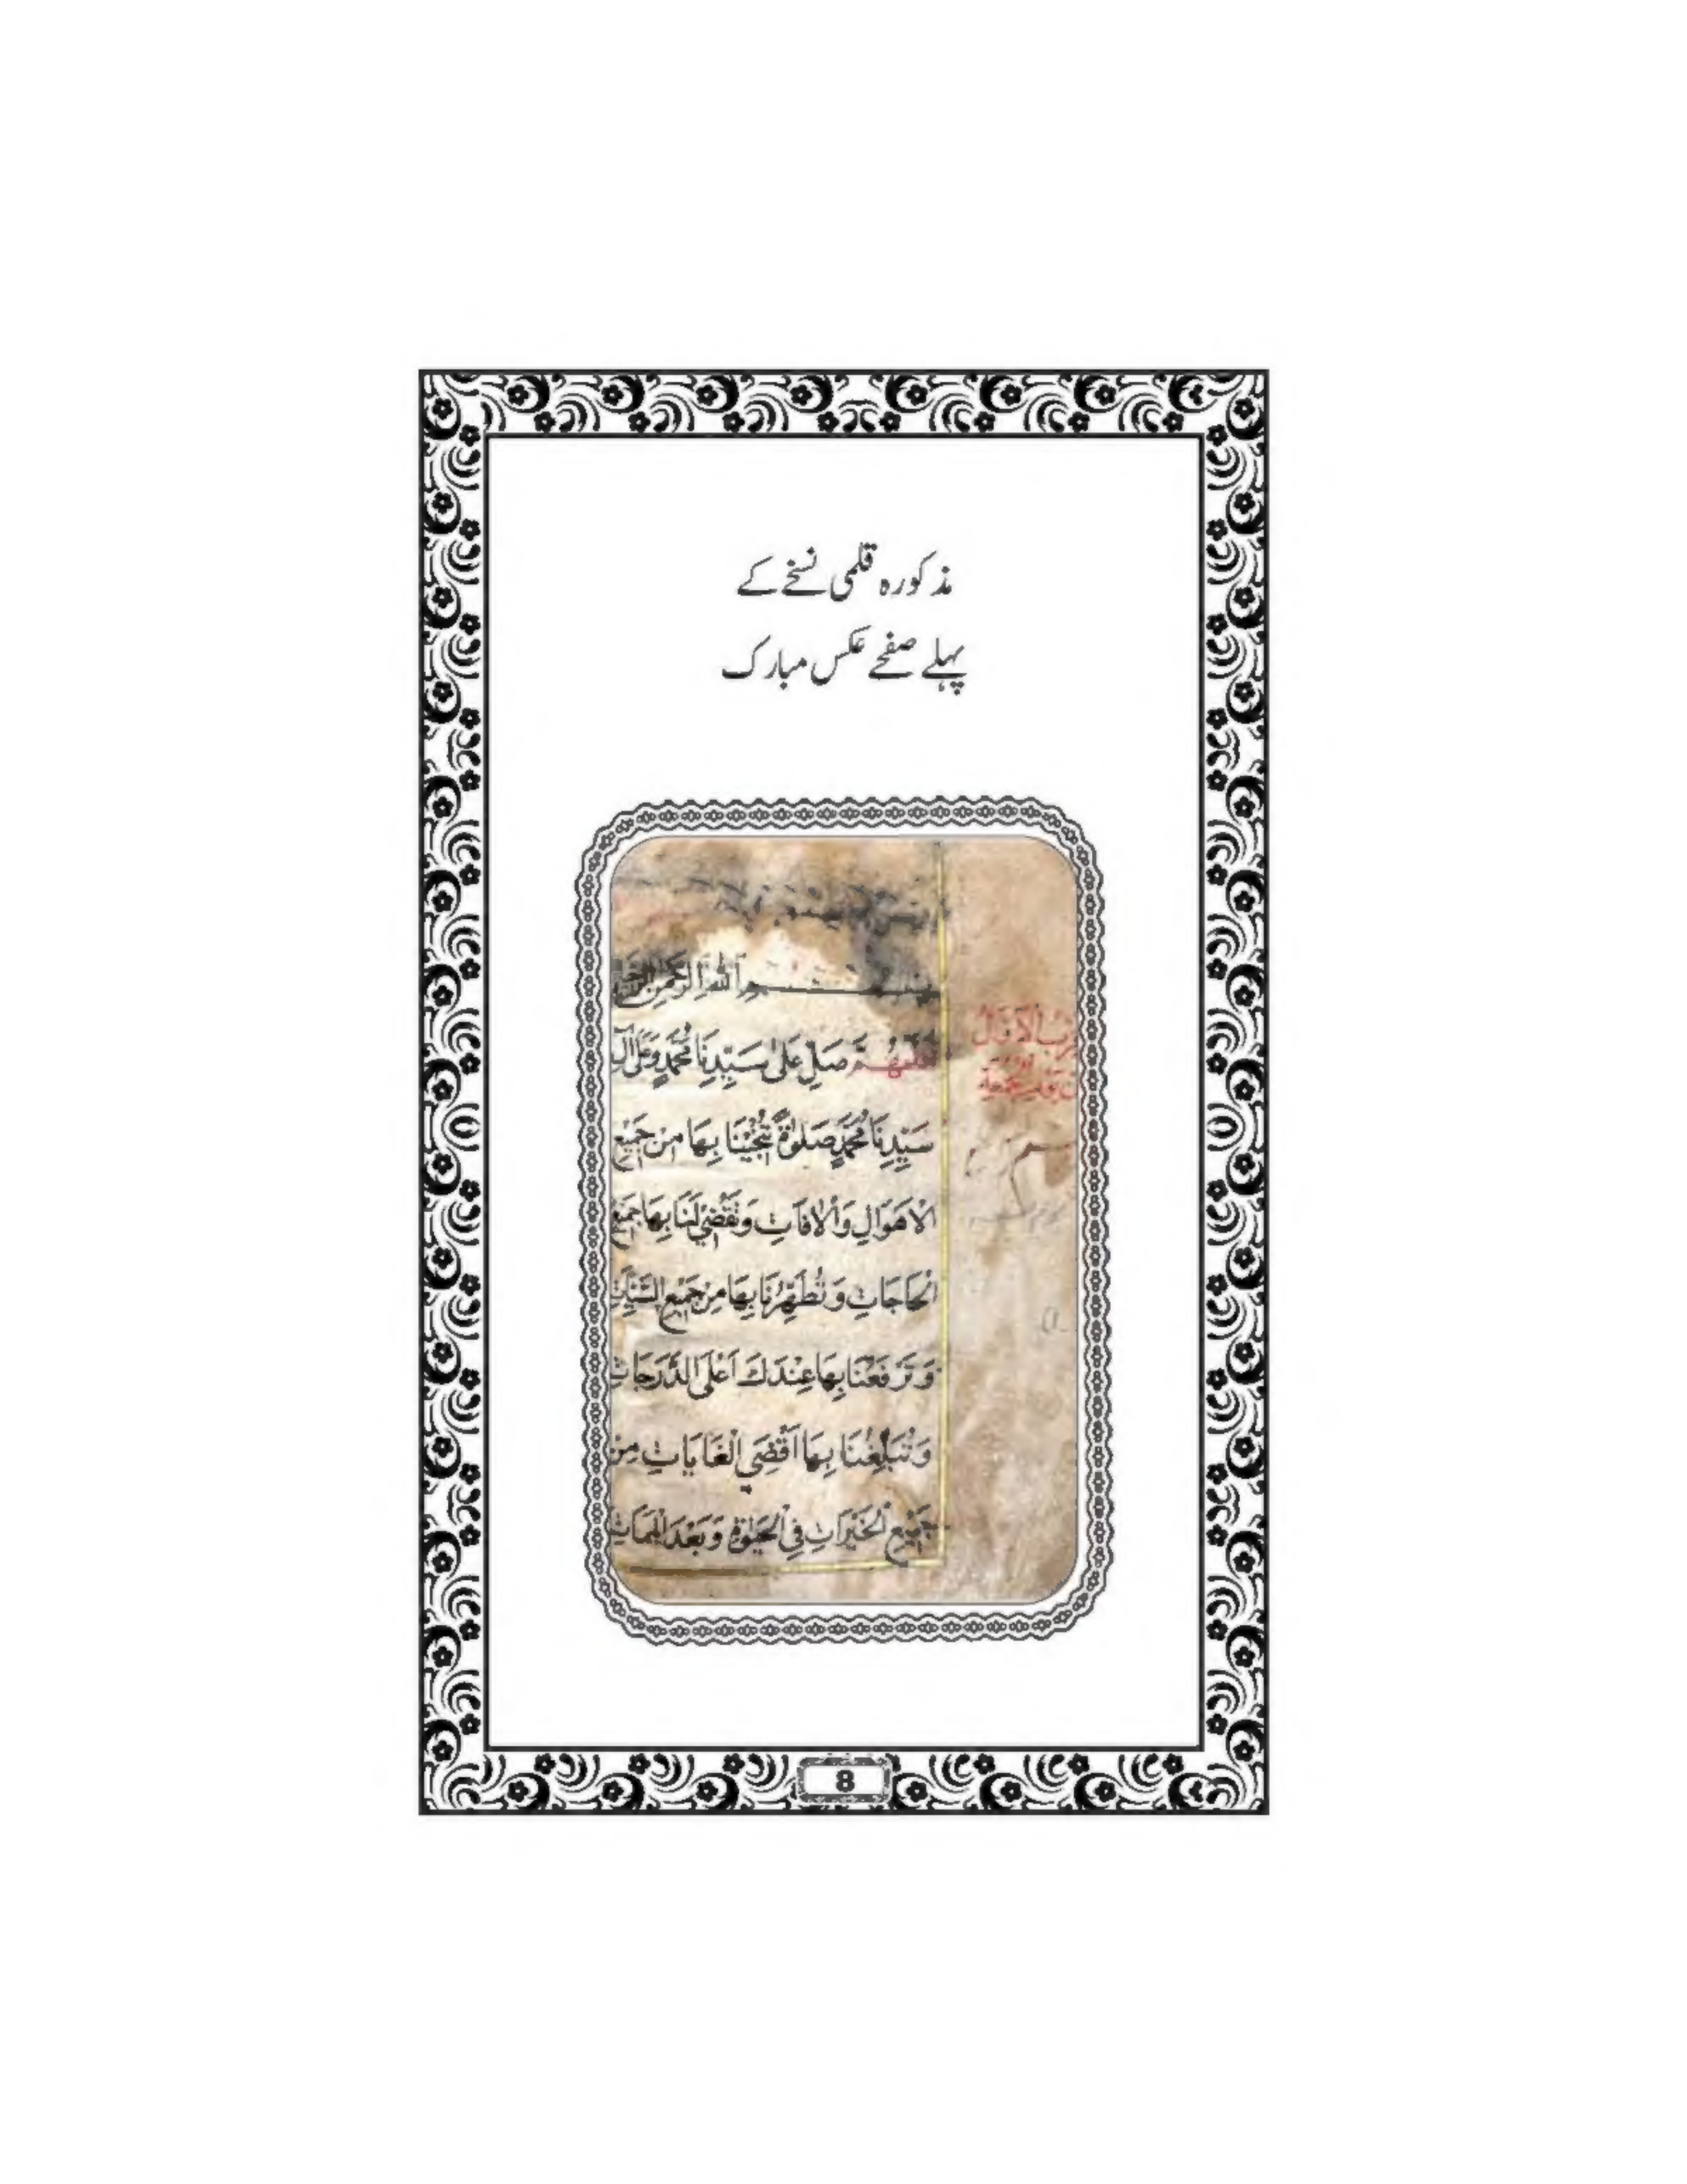 مذکورہ قلمی نسخے کے
پہلے صفحے عکس مبارک
اَللهِ الرَّحْمٰنِ
اَللّٰهُمَّ صَلِّ عَلٰى سَيِّدِنَا مُحَمَّدٍ وَعَلٰى آلِ
سَيِّدِنَا مُحَمَّدٍ صَلٰوةً تُنْجِيْنَا بِهَا مِنْ جَمِيْعِ
الْاَهْوَالِ وَالْاٰفَاتِ وَتَقْضِيْ لَنَا بِهَا جَمِيْعَ
الْحَاجَاتِ وَتُطَهِّرُنَا بِهَا مِنْ جَمِيْعِ السَّيِّئَاتِ
وَتَرْفَعُنَا بِهَا عِنْدَكَ اَعْلَى الدَّرَجَاتِ
وَتُبَلِّغُنَا بِهَا اَقْصَى الْغَايَاتِ مِنْ
جَمِيْعِ الْخَيْرَاتِ فِي الْحَيٰوةِ وَبَعْدَ الْمَمَاتِ
8